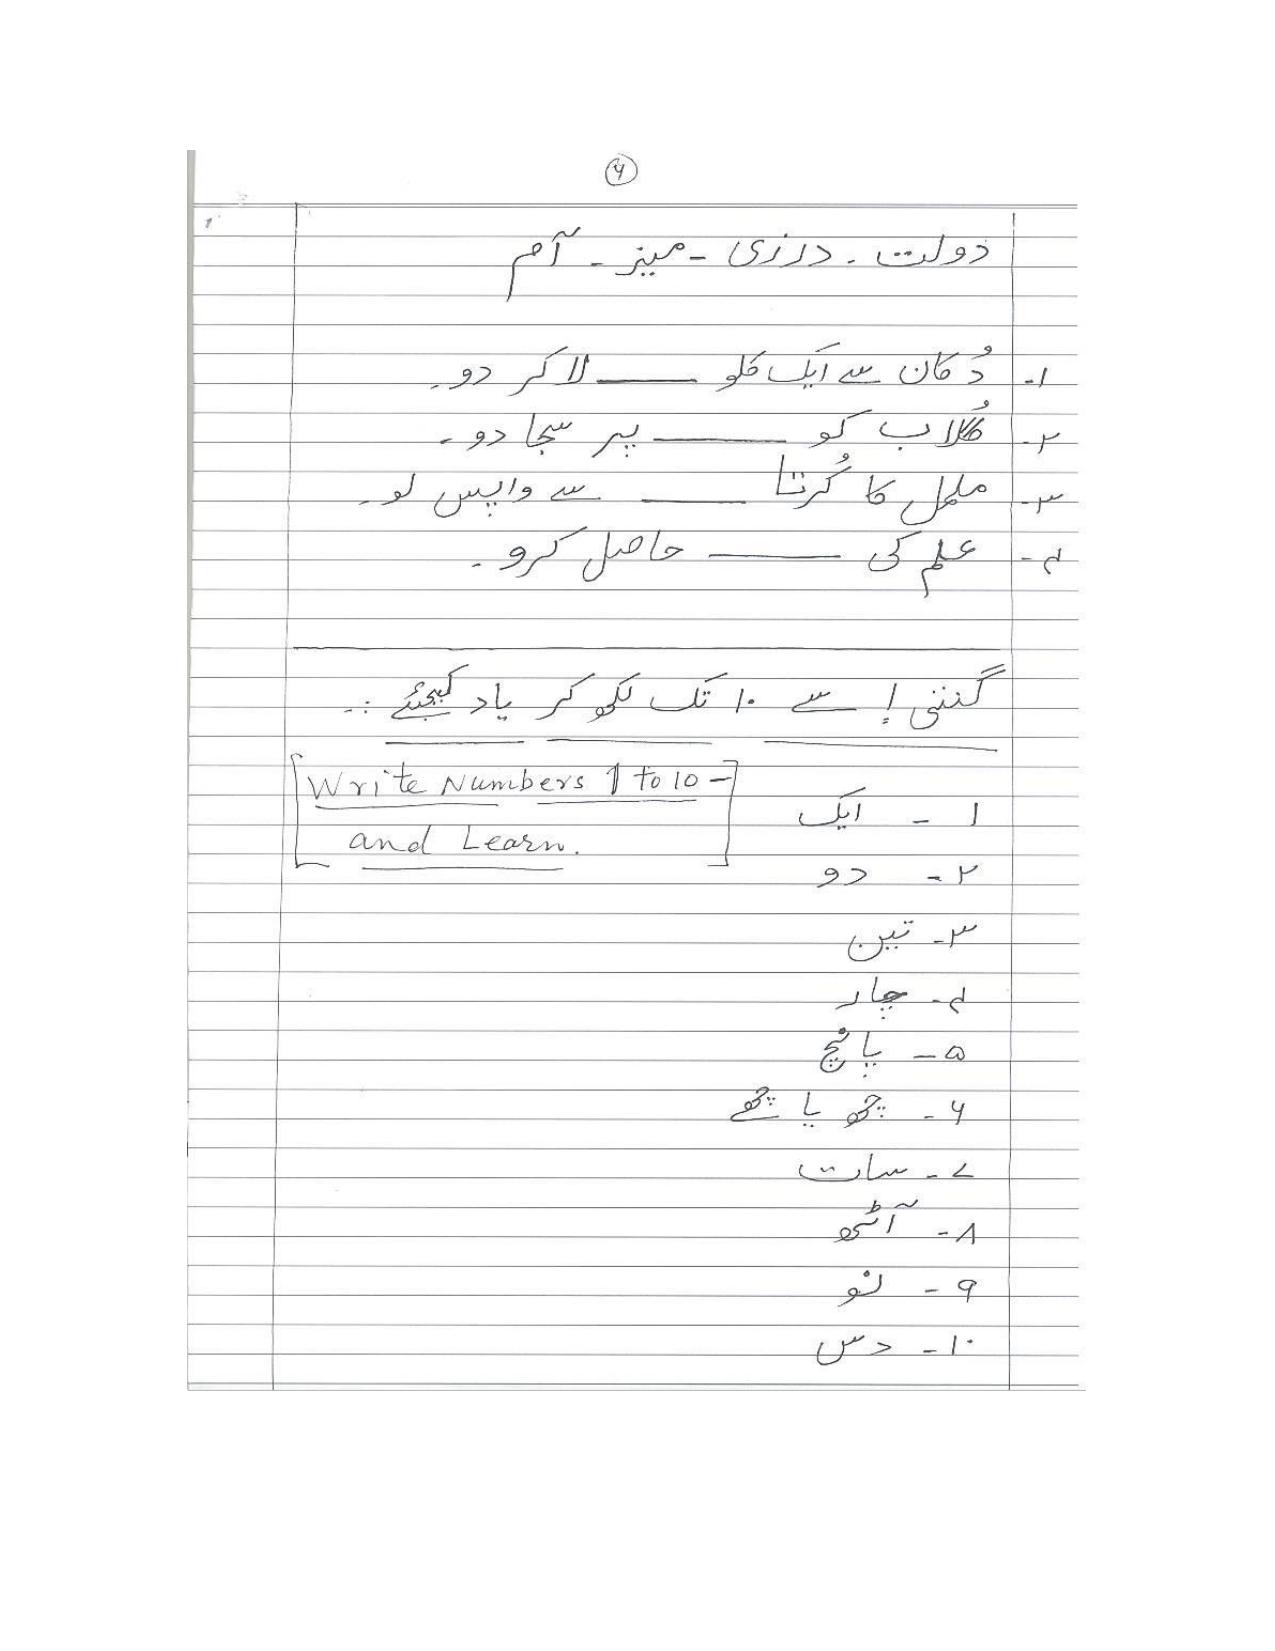 ۶
دولت ۔ درزی ۔ میز ۔ آم
۱۔ دُکان سے ایک کلو ــــــ لا کر دو۔
۲۔ گلاب کو ــــــ پر سجا دو۔
۳۔ ململ کا کُرتا ــــــ سے واپس لو۔
۴۔ علم کی ــــــ حاصل کرو۔
گنتی ۱ سے ۱۰ تک لکھ کر یاد کیجئے :۔
[Write Numbers 1 to 10 –
and Learn.]
۱ ۔ ایک
۲ ۔ دو
۳ ۔ تین
۴ ۔ چار
۵ ۔ پانچ
۶ ۔ چھ یا چھے
۷ ۔ سات
۸ ۔ آٹھ
۹ ۔ نو
۱۰ ۔ دس